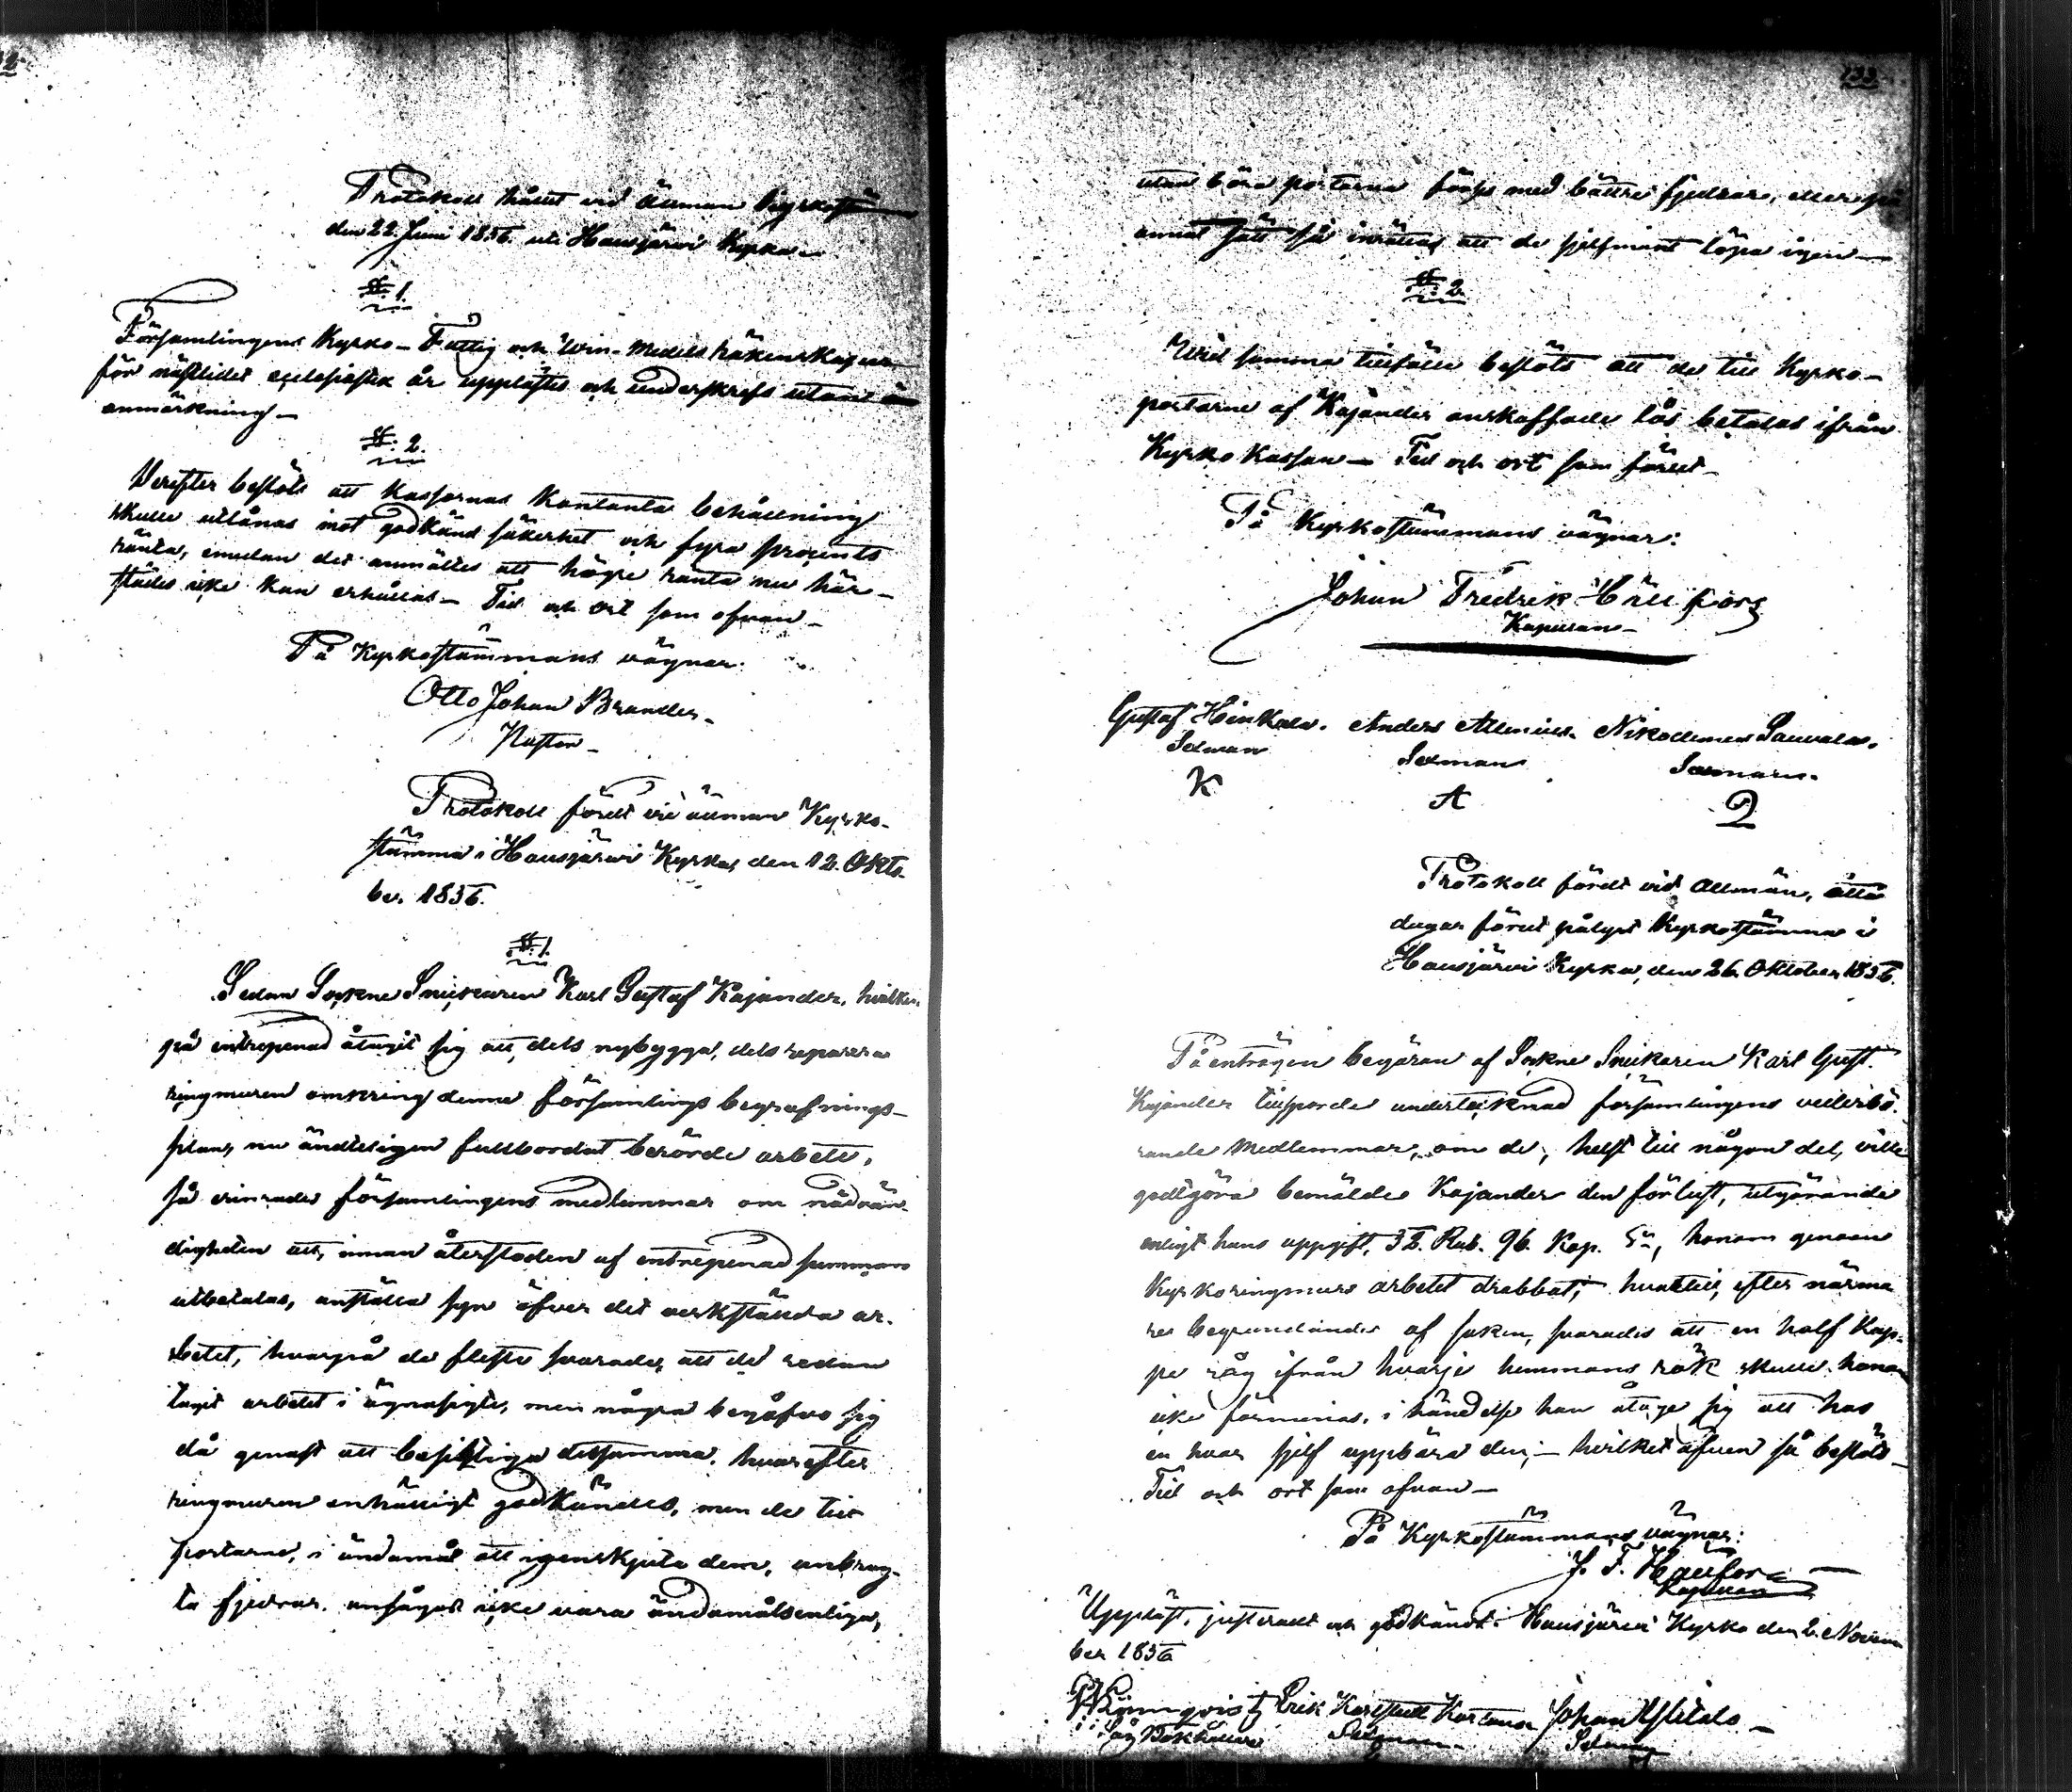 Protokoll hållit vid Allmän Kyrkostä
den 22. Juni 1856. uti Hausjärvi Kyrka
§. 1.
Församlingens Kyrko- Fattig och Win-Medels räkenskaper
för nästlidet ecclesiastik år upplästes och underskrefs utan
anmärkning-
§. 2.
Derefter beslöts att Kassornas Kontanta behållning
skulle utlånas mot godkänd säkerhet och fyra procents
ränta, emedan det anmältes att högre ränta nu här-
städes icke kan erhållas- Tid och ort som ofvan-
På Kyrkostämmans vägnar:
Otto Johan Brander.
Pastor-
Protokoll fördt vid allmän Kyrko-
stämma i Hausjärvi Kyrka, den 12. Okto-
ber 1856.
§. 1.
Sedan Sockne Snickaren Karl Gustaf Kajander, hvilken
på entrepenad åtagit sig att, dels nybygga, dels reparera
ringmuren omkring denna församlings begrafnings-
plan, nu ändteligen fullbordat berörde arbete,
så erinrades församlingens medlemmar om nödvän-
digheten att, innan återstoden af entrepenad summan
utbetalas, anställa syn öfver det verkställda ar-
betet, hvarpå de fleste svarade, att de redan
tagit arbetet i ögnasigte, men några begåfvo sig
då genast att besigtiga detsamma, hvarefter
ringmuren enhälligt godkändes, men de till
portarne, i ändamål att igenskjuta dem, anbrag-
ta fjedrar, ansågos icke vara ändamålsenliga,
133.
utan böra portarna förses med bättre fjedrar, eller på
annat sätt så inrättas att de sjelfmant löpa igen-
§. 2.
Wid samma tillfälle beslöts att de till Kyrko-
portarne af Kajander anskaffade lås betalas ifrån
Kyrko Kassan- Tid och ort som förut-
På Kyrkostämmans vägnar:
Johan Fredrik Hällfors
Kapellan-
Gustaf Hinkala. Anders Allenius. Nikodemus Sauvala.
Sexman Sexman Sexman.
K A
Protokoll fördt vid Allmän, åtta
dagar förut pålyst Kyrkostämma i
Hausjärvi Kyrka, den 26. Oktober 1856.
På enträgen begäran af Sockne Snickaren Karl Gust.
Kajander tillsporde undertecknad församlingens vederbö-
rande Medlemmar, om de, helst till någon del, ville
godtgöra bemälde Kajander den förlust, utgörande
enligt hans uppgift, 32. Rub. 96. Kop. Sr, honom genom
Kyrkoringmurs arbetet drabbat; hvartill, efter närma
re begrundande af saken, svarades att en half Kap-
pe råg ifrån hvarje hemmans rök skulle honom
icke förmenas, i händelse han åtoge sig att hos
en hvar sjelf uppbära den; - hvilket äfven så beslöts-
Tid och ort som ofvan-
På Kyrkostämmans vägnar:
J. F. Hällfors
Kapellan
Uppläst, justeradt och godkändt i Hausjärvi Kyrka den 2. Novem
ber 1856
Erik Karlstedt Johan
Bokhållare Sexman Sexman